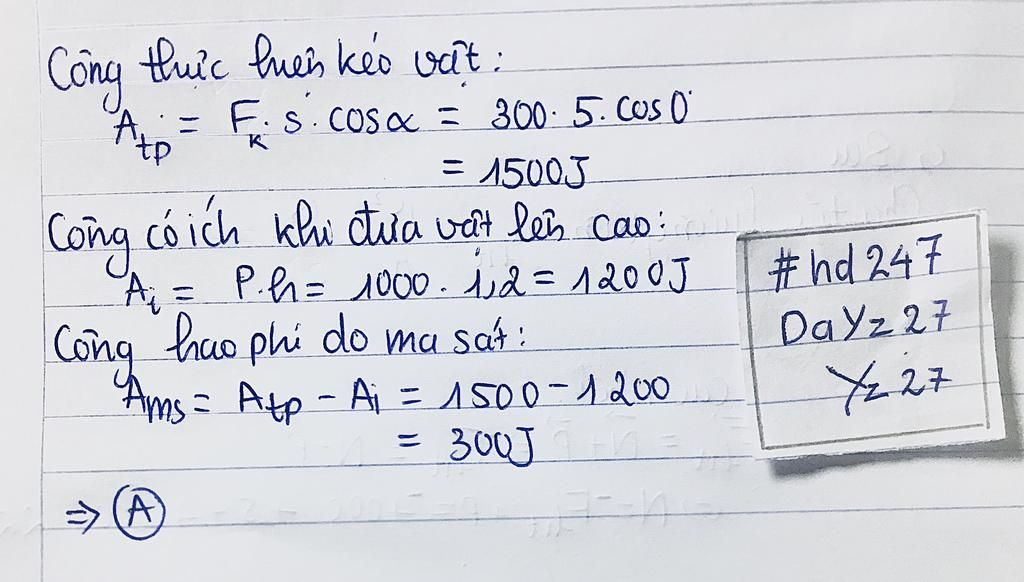 Công thức hiện kéo vật:
A_tp = F_k . s . cosα = 300 . 5 . cos0
= 1500J
Công có ích khi đưa vật lên cao:
A_i = P.h = 1000 . 1,2 = 1200J
Công hao phí do ma sát:
A_ms = A_tp - A_i = 1500 - 1200
= 300J
⇒ A
#hd247
DaYz27
Yz27